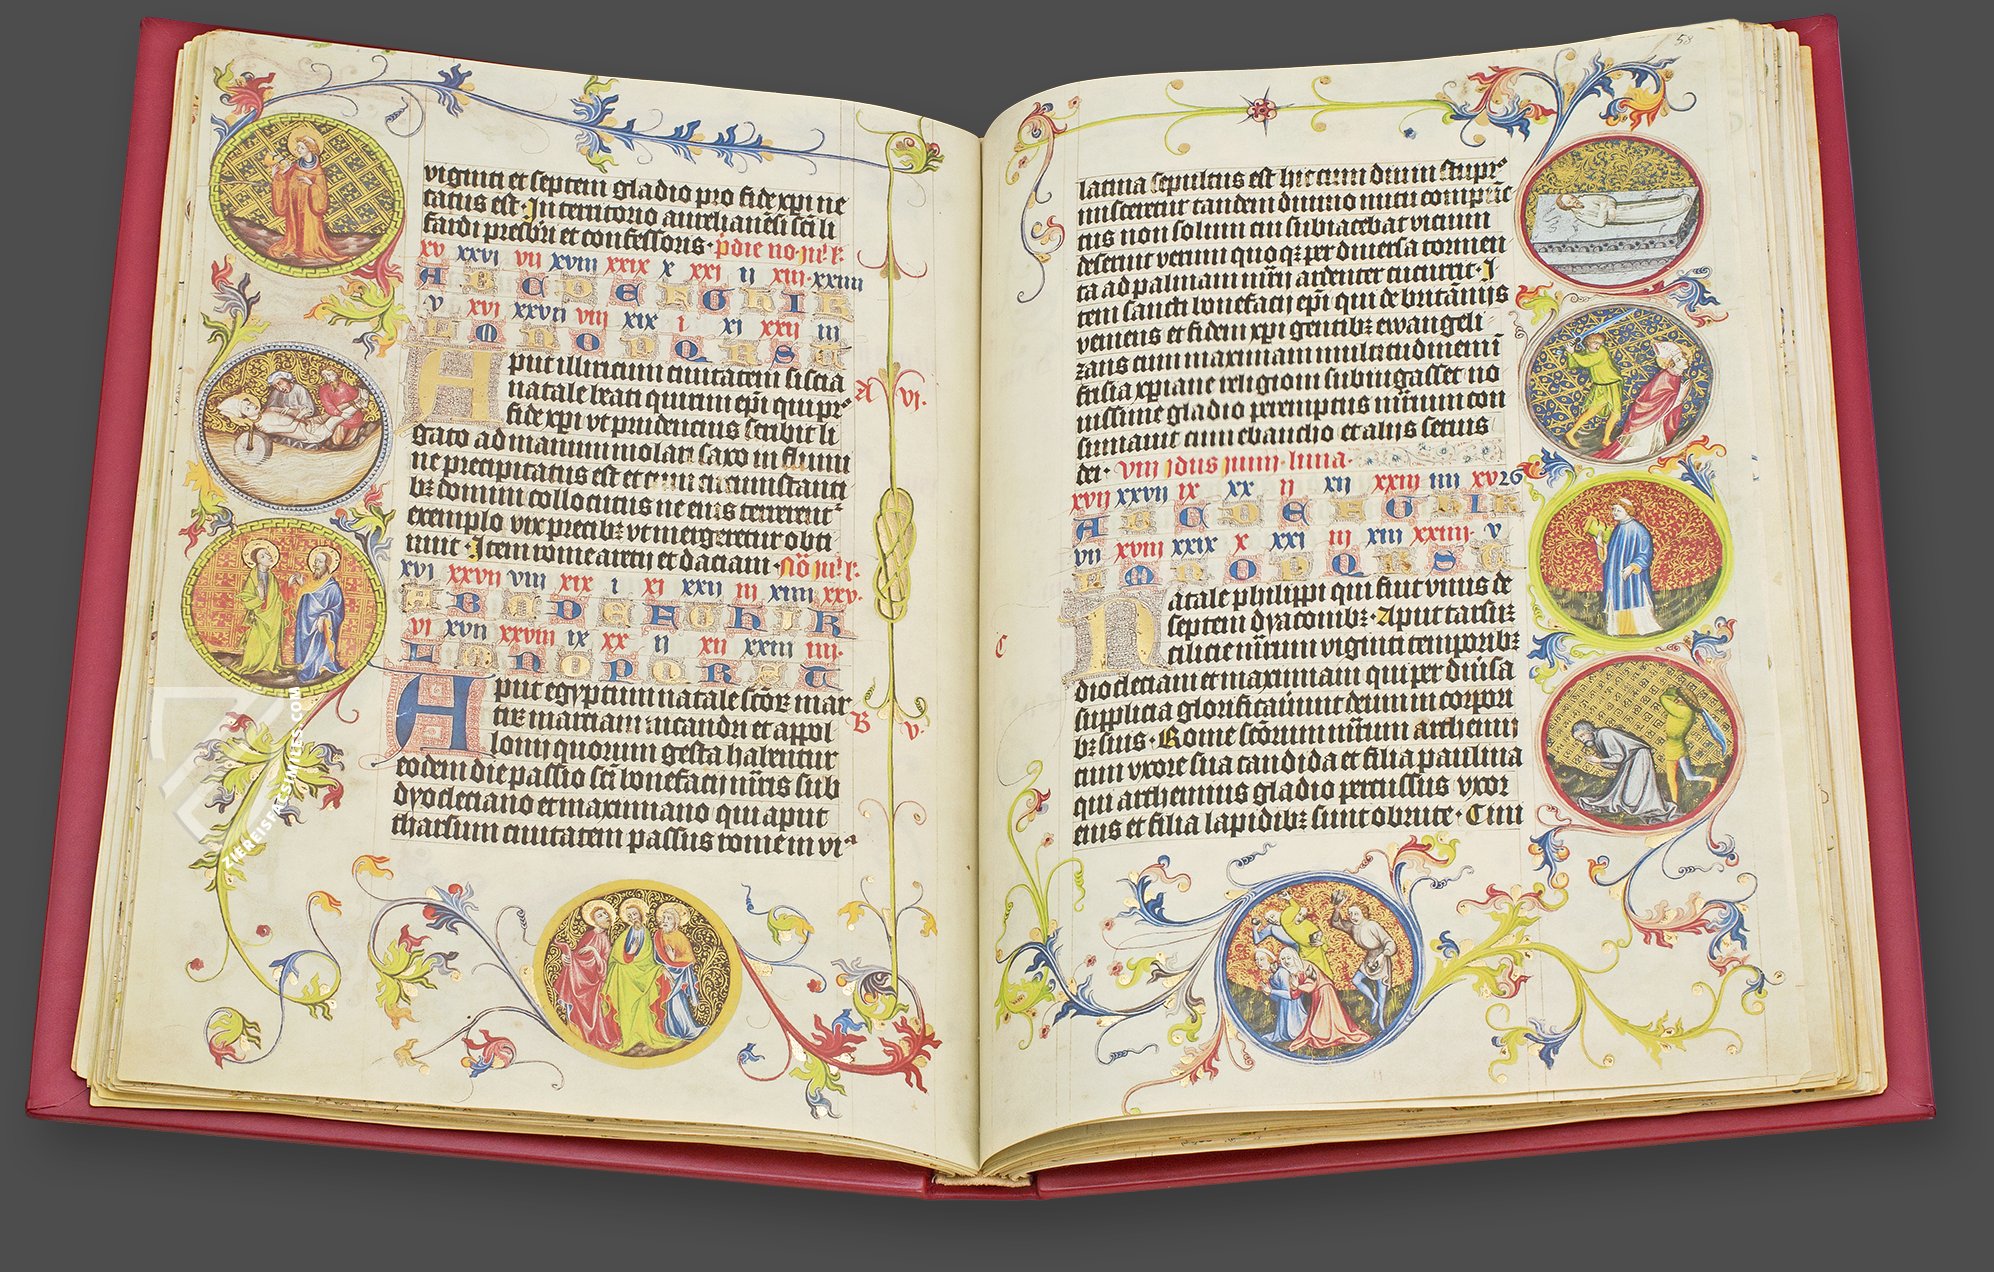 viginti et septem gladio pro fide xpi ne
catus est · In territorio aurelianesi sci li
fardi presbri et confessoris · pdie no · iunii
xv xxvi vii xviii xxix x xxi ii xiii · xxiiii
A B C D E F G H I K
v xvi xxvii viii xix i xi xxii iii
L M N O P Q R S T
Aput illiricum ciuitatem siscia
natale beati quirini epi qui pr
fide xpi vt prudencius scribit li
gato ad manum molari saxo in flumi
ne precipitatus est et cum circumstanti
bz domini collocutus ne eius terrerent
exemplo vix precibz vt mergeretur obti
nuit · Item rome arecii et daciani ·
xvi xxvii viii xix i xi xxii iii xiiii xxv ·
A B C D E F G H I K
vi xvii xxviii ix xx ii xii xxiii iiii ·
L M N O P Q R S T
Aput egyptum natale scorz mar
tirz marciani nicandri et appol
lonii quorum gesta habentur
eodem die passio sci bonefacii mris sub
dyocleciano et maximiano qui aput
tharsum ciuitatem passus rome in vi a
A vi ·
B v ·
ZIEREISFACSIMILES.COM
58
latina sepultus est hic cum diuini
misceretur tandem diuino nutu
tus non solum eni subiacebat vicium
deseruit verum quoqz per diuersa tormen
ta ad palmam mrii ardenter cucurrit · I
tem sancti bonefacii epi qui de britaniis
veniens et fidem xpi gentibz ewangeli
zans cum maximam multitudinem i
frisia xpiane religioni subiugasset no
uissime gladio peremptus mrium con
sumauit cum ebancho et aliis seruis
dei · viii idus iunii · luna ·
xvii xxvii ix xx ii xii xxiii iiii xv 26
A B C D E F G H I K
vii xviii xxix x xxi iii xiii xxiiii · v
L M N O P Q R S T
C
Natale philippi qui fuit vnus de
septem dyaconibz · Aput tarsuz
cilicie mrum viginti temporibz
dioclecian et maximiani qui per diuersa
supplicia glorificauerunt deum in corpori
bz suis · Rome scorum mrum archemii
cum vxore sua candida et filia paulina
qui archemius gladio percussus vxor
eius et filia lapidibz sunt obrute · Cum